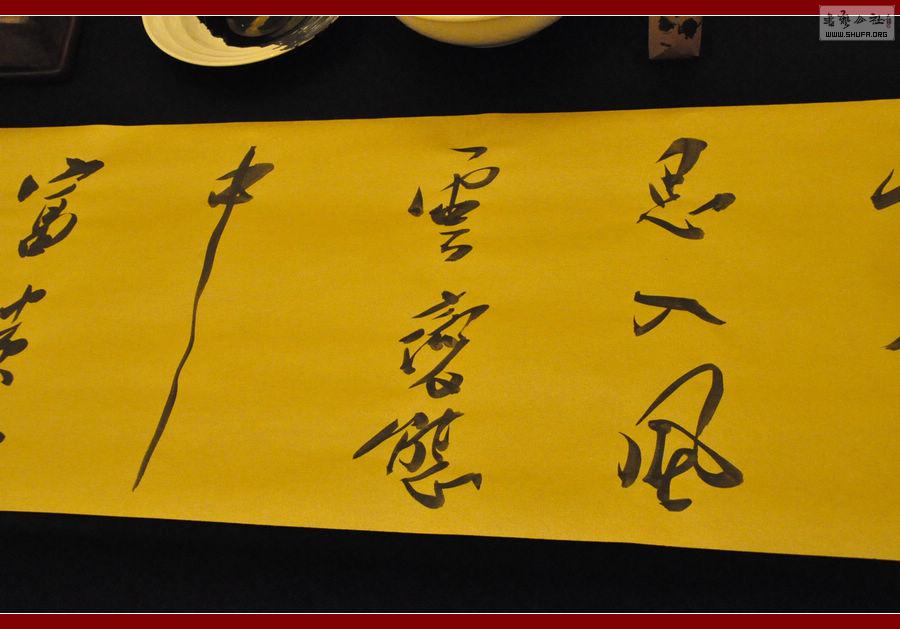 思入風
雲變態
中
富貴
書藝公社
WWW.SHUFA.ORG